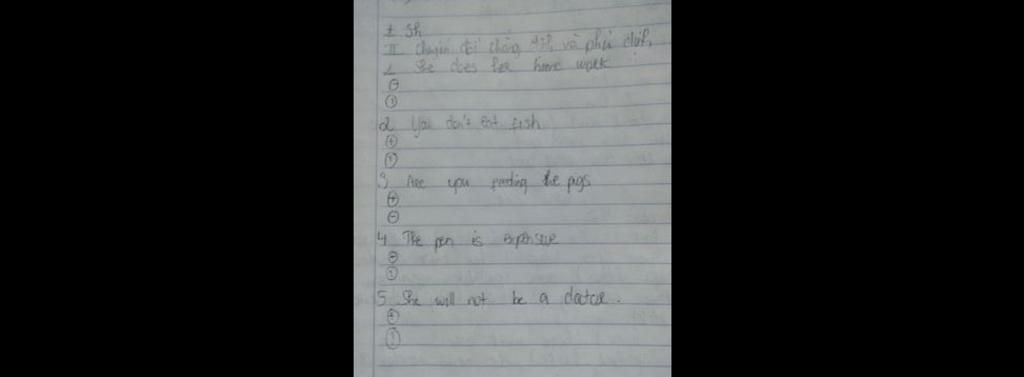 I Sh
II Chuyển đổi khẳng định và phủ định
1 She does her home work
⊖
?
2 You don't eat fish
⊕
?
3 Are you feeding the pigs
⊕
⊖
4 The pen is expensive
⊖
?
5 She will not be a doctor.
⊕
?